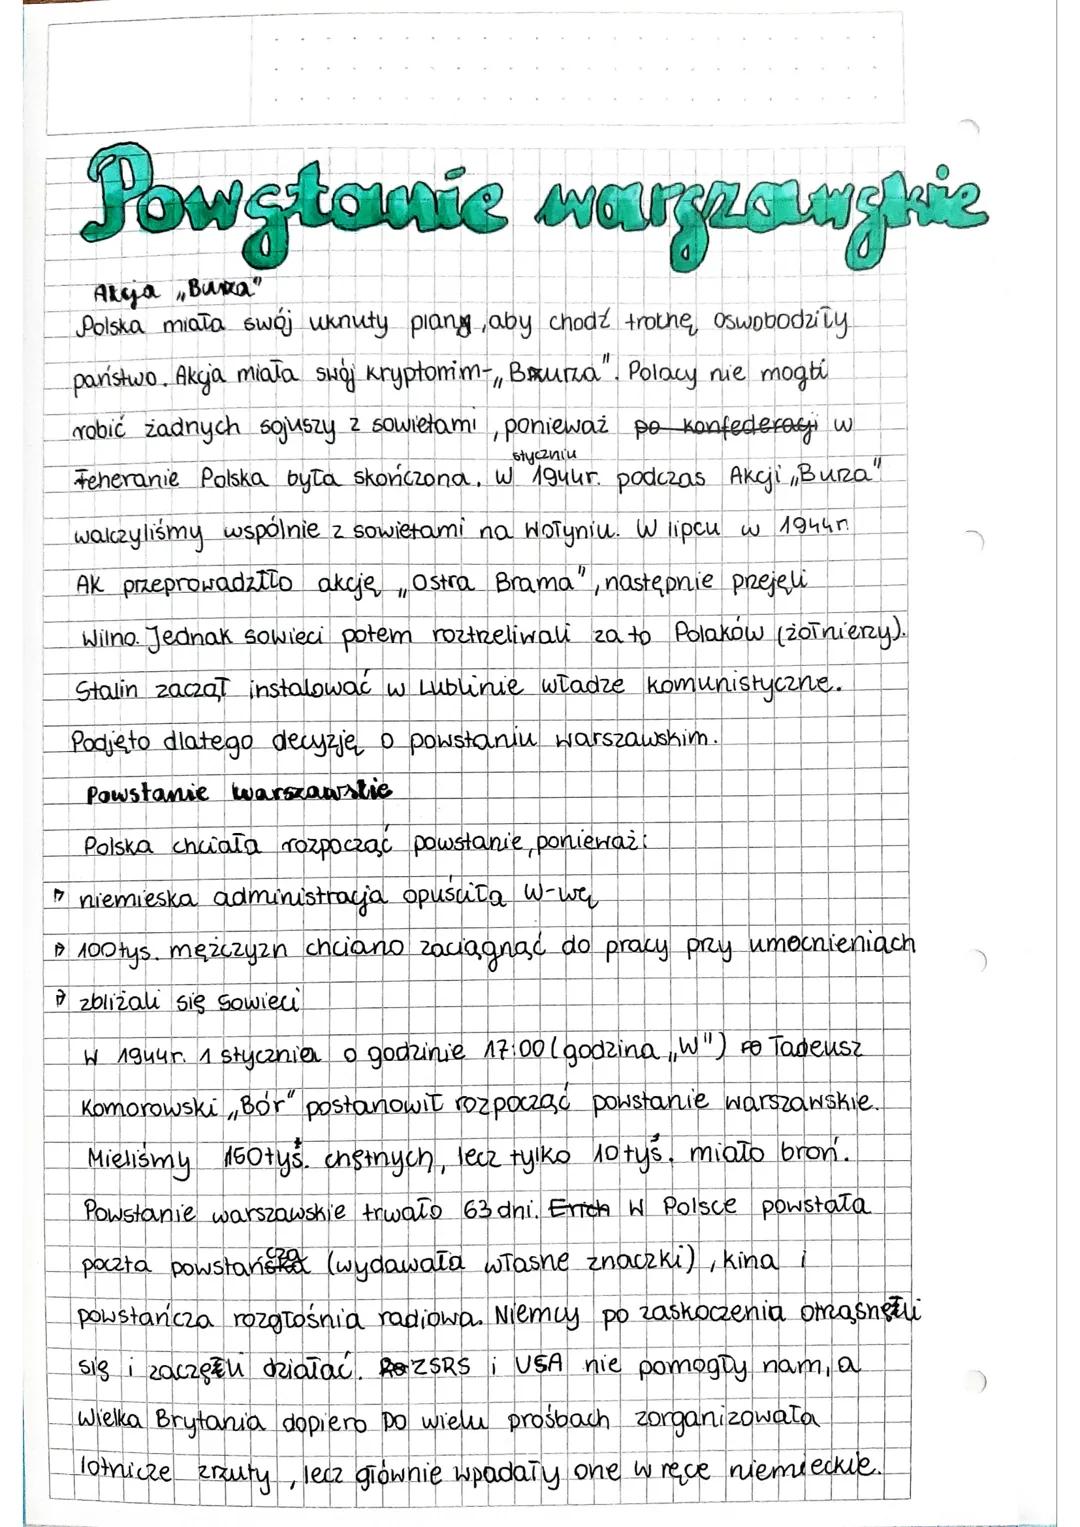 Powstanie warszawskie
Akcja „Burza"
Polska miała swój uknuty plany, aby chodź trochę oswobodziły
państwo. Akcja miała swój kryptonim-„Burza". Polacy nie mogli
robić żadnych sojuszy z sowietami, ponieważ po konfederacji w
styczniu
Teheranie Polska była skończona. W 1944r. podczas Akcji „Burza"
walczyliśmy wspólnie z sowietami na Wołyniu. W lipcu w 1944r.
AK przeprowadziło akcję „Ostra Brama", następnie przejęli
Wilno. Jednak sowieci potem roztrzeliwali za to Polaków (żołnierzy).
Stalin zaczął instalować w Lublinie władze komunistyczne.
Podjęto dlatego decyzję o powstaniu warszawskim.
Powstanie warszawskie
Polska chciała rozpocząć powstanie, ponieważ:
niemieska administracja opuściła W-wę
100tys. mężczyzn chciano zaciągnąć do pracy przy umocnieniach
zbliżali się sowieci
W 1944r. 1 stycznia o godzinie 17:00 (godzina „W") Tadeusz
Komorowski „Bór" postanowił rozpocząć powstanie warszawskie.
Mieliśmy tyś. chętnych, lecz tylko 10 tyś. miało broń.
Powstanie warszawskie trwało 63 dni. Erich W Polsce powstała
poczta powstańcza (wydawała własne znaczki), kina i
powstańcza rozgłośnia radiowa. Niemcy po zaskoczenia otrząsnęli
się i zaczęli działać. ZSRS i USA nie pomogły nam, a
Wielka Brytania dopiero po wielu prośbach zorganizowała
lotnicze zrzuty, lecz głównie wpadały one w ręce niemieckie.